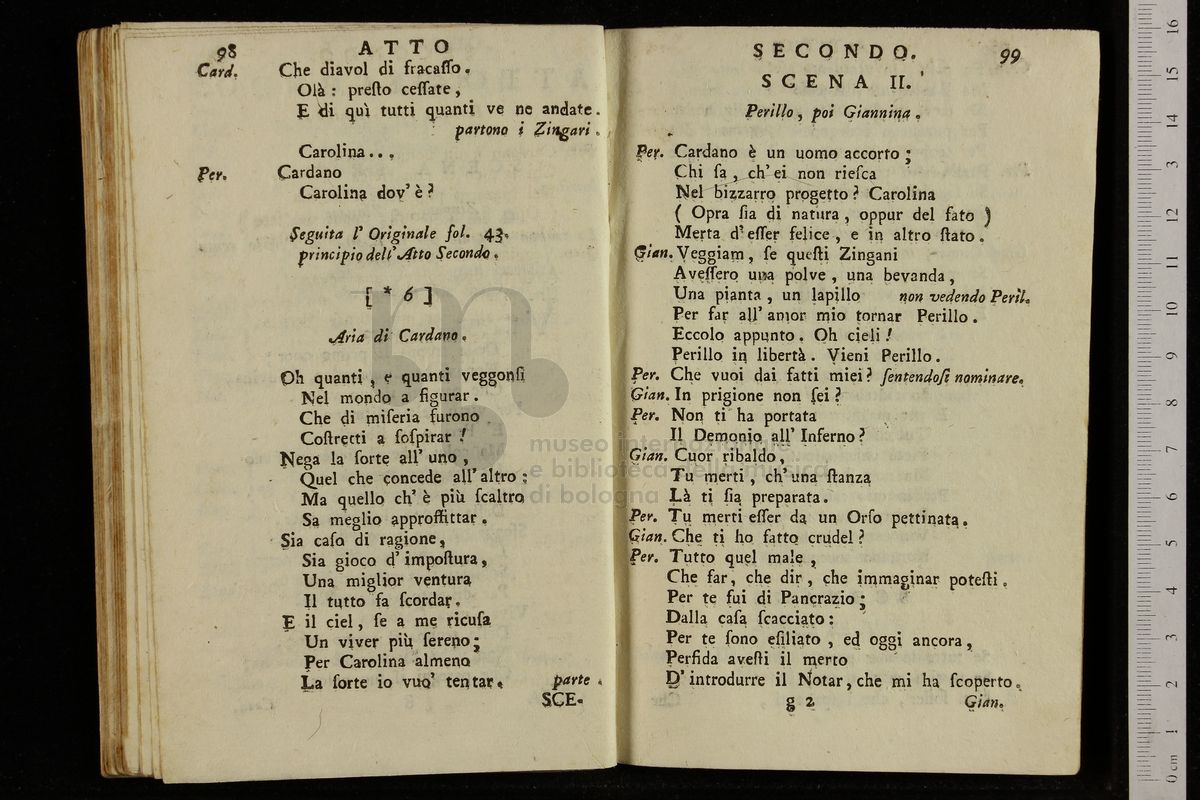 98
ATTO
Card. Che diavol di fracaſſo.
Olà: preſto ceſſate,
E di quì tutti quanti ve ne andate.
partono i Zingari.
Carolina...
Per. Cardano
Carolina dov' è?
Seguita l' Originale fol. 43.
principio dell' Atto Secondo.
[ * 6 ]
Aria di Cardano.
Oh quanti, e quanti veggonſi
Nel mondo a figurar.
Che di miſeria furono
Coſtretti a ſoſpirar!
Nega la ſorte all' uno,
Quel che concede all' altro:
Ma quello ch' è più ſcaltro
Sa meglio approffittar.
Sia caſo di ragione,
Sia gioco d' impoſtura,
Una miglior ventura
Il tutto fa ſcordar.
E il ciel, ſe a me ricuſa
Un viver più ſereno;
Per Carolina almeno
La ſorte io vuo' tentar. parte.
SCE-
SECONDO. 99
SCENA II.
Perillo, poi Giannina.
Per. Cardano è un uomo accorto;
Chi ſa, ch' ei non rieſca
Nel bizzarro progetto? Carolina
( Opra ſia di natura, oppur del fato )
Merta d' eſſer felice, e in altro ſtato.
Gian. Veggiam, ſe queſti Zingani
Aveſſero una polve, una bevanda,
Una pianta, un lapillo non vedendo Peril.
Per far all' amor mio tornar Perillo.
Eccolo appunto. Oh cieli!
Perillo in libertà. Vieni Perillo.
Per. Che vuoi dai fatti miei? ſentendoſi nominare.
Gian. In prigione non ſei?
Per. Non ti ha portata
Il Demonio all' Inferno?
Gian. Cuor ribaldo,
Tu merti, ch' una ſtanza
Là ti ſia preparata.
Per. Tu merti eſſer da un Orſo pettinata.
Gian. Che ti ho fatto crudel?
Per. Tutto quel male,
Che far, che dir, che immaginar poteſti.
Per te fui di Pancrazio;
Dalla caſa ſcacciato:
Per te ſono eſiliato, ed oggi ancora,
Perfida aveſti il merto
D' introdurre il Notar, che mi ha ſcoperto.
g 2 Gian.
museo internazionale
e biblioteca della musica
di bologna
0 cm 1 2 3 4 5 6 7 8 9 10 11 12 13 14 15 16